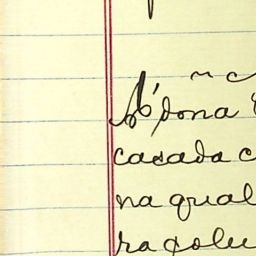 A' dona
casada c
na qual
ra solu